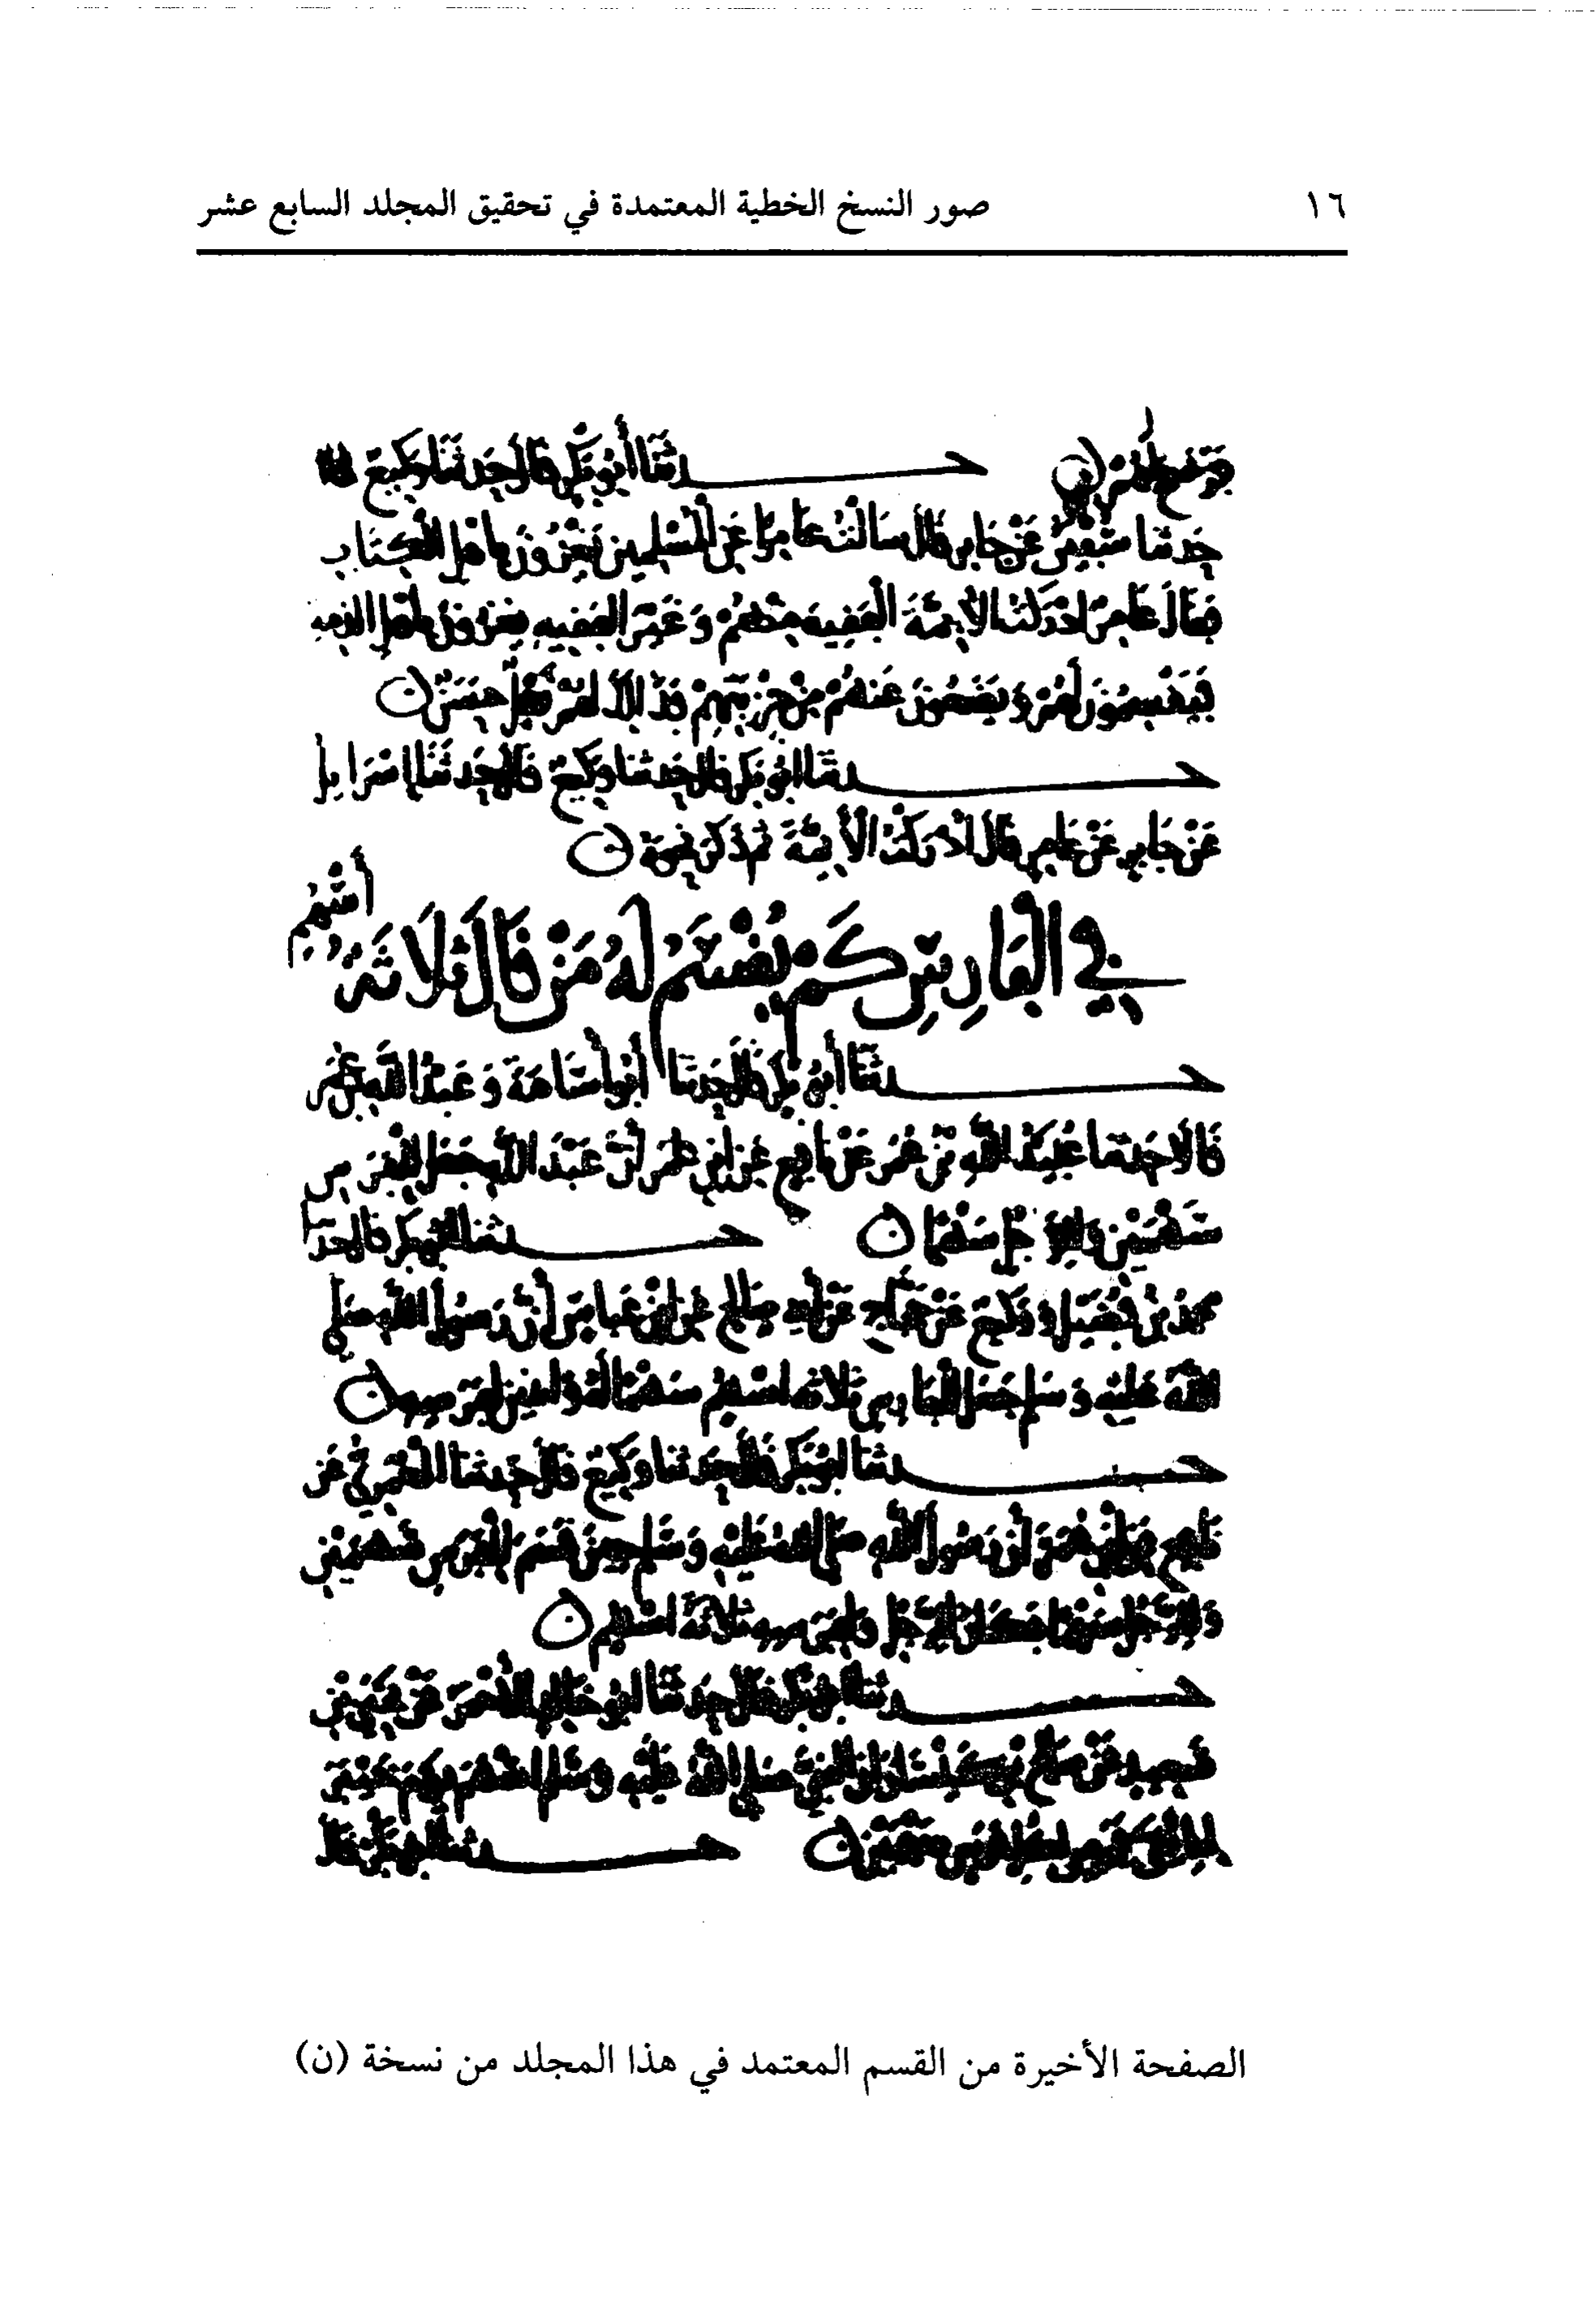 ١٦
صور النسخ الخطية المعتمدة في تحقيق المجلد السابع عشر
حدثنا أبو بكر قال حدثنا وكيع
حدثنا سفين عن جابر قال سالت عامرا عن المسلمين يغزون باهل الكتاب
فقال عامر ادركت الايمة الفقيه منهم وغير الفقيه يغزون باهل الذمه
فيقسمون لهم ويضعون عنهم من جزيتهم فذلك لهم نفل حسن
حدثنا ابو بكر قال حدثنا وكيع قال حدثنا اسرايل
عن جابر عن عامر قال ادركت الأيمة ثم ذكر نحوه
في الفارس كم يقسم له من قال ثلاثة أسهم
حدثنا أبو بكر قال حدثنا أبو أسامة وعبد الله بن نمير
قالا حدثنا عبيد الله بن عمر عن نافع عن ابن عمر أن
سهمين وللرجل سهما حدثنا ابو بكر قال حدثنا
محمد بن فضيل ووكيع عن حجاج عن أبي صالح عن ابن عباس أن رسول الله صلى
الله عليه وسلم جعل للفارس ثلاثة اسهم سهما له واثنين لفرسه
حدثنا ابو بكر قال حدثنا وكيع قال حدثنا العمري عن
نافع عن ابن عمر أن رسول الله صلى الله عليه وسلم قسم للفرس سهمين
وللرجل سهما فكان للرجل ولفرسه ثلاثة اسهم
حدثنا ابو بكر قال حدثنا ابو خالد الأحمر عن يحيى بن
سعيد عن صالح بن كيسان أن النبي صلى الله عليه وسلم اسهم يوم خيبر
لمائتي فرس لكل فرس سهمين حدثنا ابو بكر قال
الصفحة الأخيرة من القسم المعتمد في هذا المجلد من نسخة (ن)